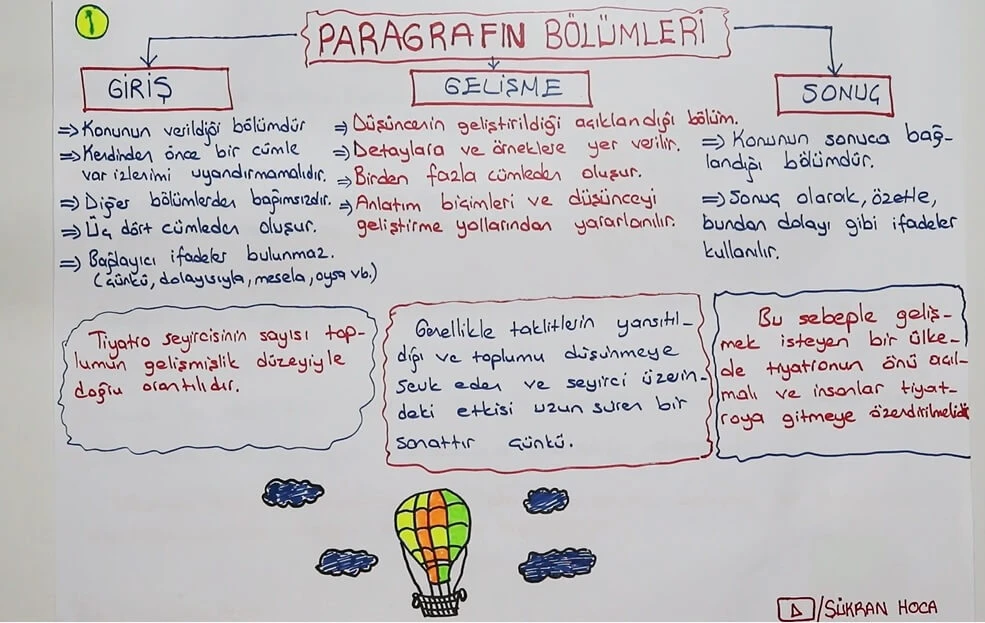 1
PARAGRAFIN BÖLÜMLERİ
GİRİŞ
⇒ Konunun verildiği bölümdür
⇒ Kendinden önce bir cümle
var izlenimi uyandırmamalıdır.
⇒ Diğer bölümlerden bağımsızdır.
⇒ Üç dört cümleden oluşur.
⇒ Bağlayıcı ifadeler bulunmaz.
(Çünkü, dolayısıyla, mesela, oysa vb.)
Tiyatro seyircisinin sayısı top-
lumun gelişmişlik düzeyiyle
doğru orantılıdır.
GELİŞME
⇒ Düşüncenin geliştirildiği açıklandığı bölüm.
⇒ Detaylara ve örneklere yer verilir.
⇒ Birden fazla cümleden oluşur.
⇒ Anlatım biçimleri ve düşünceyi
geliştirme yollarından yararlanılır.
Genellikle taklitlerin yansıtıl-
dığı ve toplumu düşünmeye
sevk eden ve seyirci üzerin-
deki etkisi uzun süren bir
sanattır çünkü.
SONUÇ
⇒ Konunun sonuca bağ-
landığı bölümdür.
⇒ Sonuç olarak, özetle,
bundan dolayı gibi ifadeler
kullanılır.
Bu sebeple geliş-
mek isteyen bir ülke-
de tiyatronun önü açıl-
malı ve insanlar tiyat-
roya gitmeye özendirilmelidir
/ŞÜKRAN HOCA